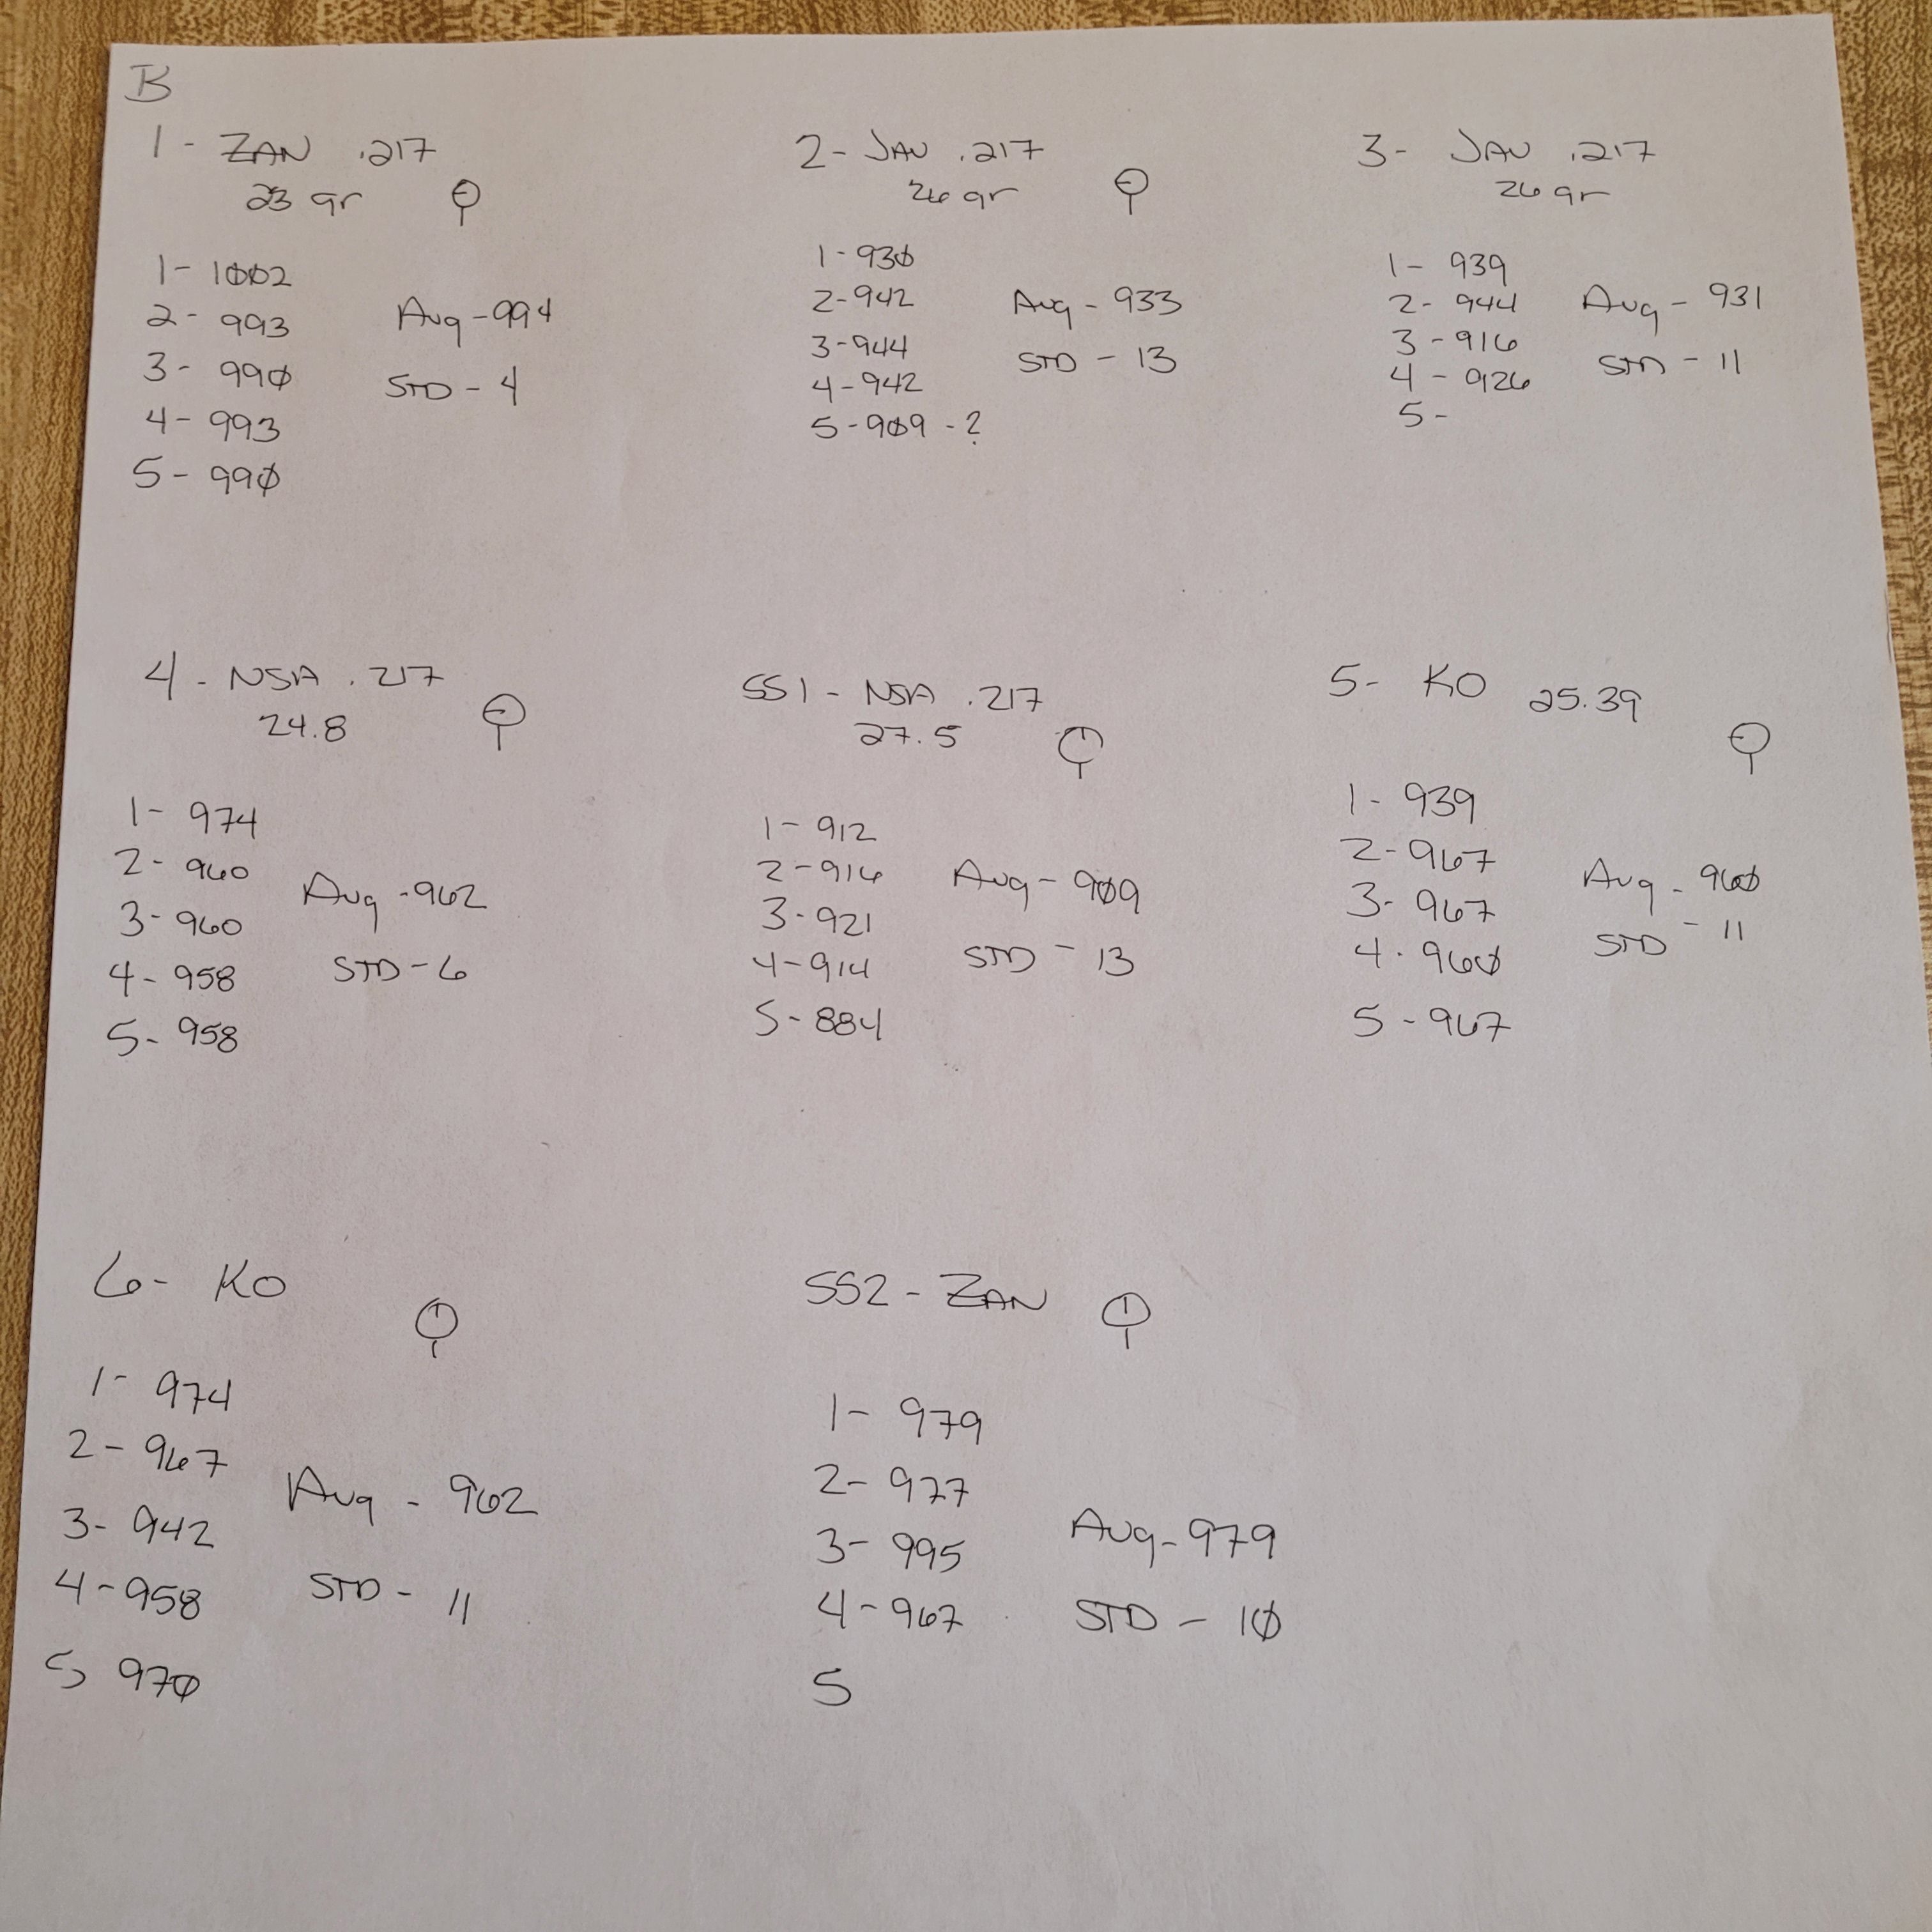 B
1 - ZAN .217
23 gr
1 - 1002
2 - 993
3 - 990
4 - 993
5 - 990
Avg - 994
STD - 4
2 - JAV .217
26 gr
1 - 930
2 - 942
3 - 944
4 - 942
5 - 909 - ?
Avg - 933
STD - 13
3 - JAV .217
26 gr
1 - 939
2 - 944
3 - 916
4 - 926
5 -
Avg - 931
STD - 11
4 - NSA .217
24.8
1 - 974
2 - 960
3 - 960
4 - 958
5 - 958
Avg - 962
STD - 6
SS1 - NSA .217
27.5
1 - 912
2 - 916
3 - 921
4 - 914
5 - 884
Avg - 909
STD - 13
5 - KO 25.39
1 - 939
2 - 967
3 - 967
4 - 960
5 - 967
Avg - 960
STD - 11
6 - KO
1 - 974
2 - 967
3 - 942
4 - 958
5 970
Avg - 962
STD - 11
SS2 - ZAN
1 - 979
2 - 977
3 - 995
4 - 967
5
Avg - 979
STD - 10